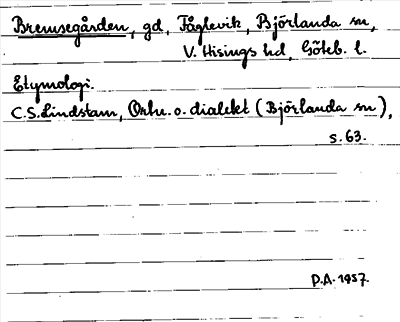 Bremsegården, gd, Fåglevik, Björlanda sn,
V. Hisings hd, Göteb. l.
Etymologi.
C.S. Lindstam, Ortn. o. dialekt (Björlanda sn),
s. 63.
D.A. 1957.